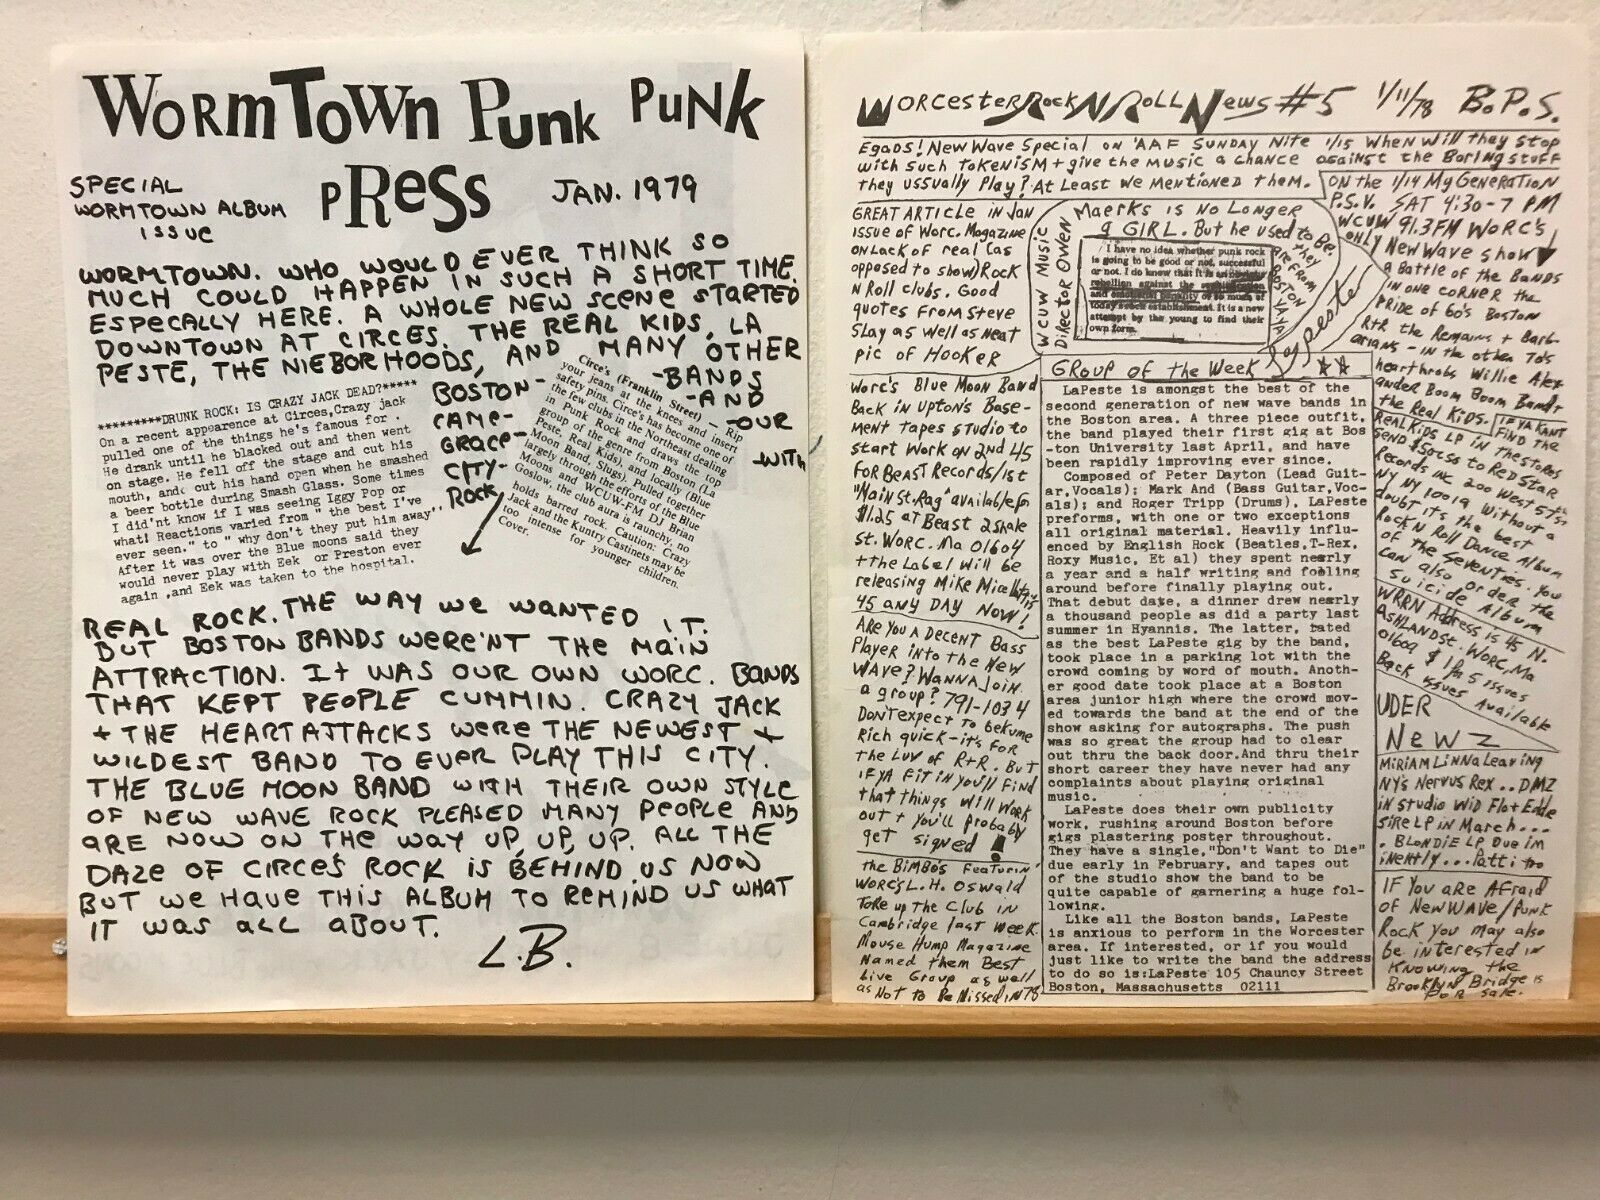 WORMTOWN PUNK PUNK
PRESS
SPECIAL
WORMTOWN ALBUM
ISSUE
JAN. 1979
WORMTOWN. WHO WOULD EVER THINK SO
MUCH COULD HAPPEN IN SUCH A SHORT TIME.
ESPECALLY HERE. A WHOLE NEW SCENE STARTED
DOWNTOWN AT CIRCES. THE REAL KIDS, LA
PESTE, THE NIEBORHOODS, AND MANY OTHER
BOSTON-
-BANDS
-AND
CAME-
-OUR
GRACE-
CITY-
-WITH
ROCK
*********DRUNK ROCK: IS CRAZY JACK DEAD?*****
On a recent appearence at Circes,Crazy jack
pulled one of the things he's famous for .
He drank until he blacked out and then went
on stage. He fell off the stage and cut his
mouth, and cut his hand open when he smashed
a beer bottle during Smash Glass. Some times
I did'nt know if I was seeing Iggy Pop or
what! Reactions varied from " the best I've
ever seen." to " why don't they put him away",
After it was over the Blue moons said they
would never play with Eek or Preston ever
again ,and Eek was taken to the hospital.
Circe's (Franklin Street) — Rip
your jeans at the knees and insert
safety pins. Circe's has become one of
the few clubs in the Northeast dealing
in Punk Rock and draws the top
group of the genre from Boston (La
Peste, Real Kids), and locally (Blue
Moon Band, Slugs). Pulled together
largely through the efforts of the Blue
Moons and WCUW-FM DJ Brian
Goslow, the club aura is raunchy, no
holds barred rock. Caution: Crazy
Jack and the Kuntry Castinets may be
too intense for younger children.
Cover.
REAL ROCK. THE WAY WE WANTED IT.
BUT BOSTON BANDS WERE'NT THE MAIN
ATTRACTION. It WAS OUR OWN WORC. BANDS
THAT KEPT PEOPLE CUMMIN. CRAZY JACK
+ THE HEARTATTACKS WERE THE NEWEST +
WILDEST BAND TO EVER PLAY THIS CITY.
THE BLUE MOON BAND WITH THEIR OWN STYLE
OF NEW WAVE ROCK PLEASED MANY PEOPLE AND
ARE NOW ON THE WAY UP, UP, UP. ALL THE
DAZE OF CIRCE'S ROCK IS BEHIND US NOW
BUT WE HAVE THIS ALBUM TO REMIND US WHAT
IT WAS ALL ABOUT.
L.B.
WORCESTER ROCK N ROLL NEWS #5 1/11/78 B.P.S.
Egads! New Wave Special on 'AAF SUNDAY Nite 1/15 When Will they Stop
with Such Tokenism + give the music a chance against the Boring stuff
they ussually Play? At Least We Mentioned them.
GREAT ARTICLE in Jan
issue of Worc. Magazine
on Lack of real (as
opposed to show) Rock
N Roll clubs. Good
quotes From Steve
Slay as Well as Neat
pic of Hooker
Worc's Blue Moon Band
Back in Upton's Base-
ment Tapes studio to
start Work on 2nd 45
For Beast Records/1st
"Main St. Rag" available for
$1.25 at Beast 2 Shale
St. Worc. Ma 01604
+ the Label Will be
releasing Mike
45 any DAY NOW!
Are You A Decent Bass
Player into the New
Wave? Wanna Join
a group? 791-1034
Don't expect To bekume
Rich quick-it's For
the Luv of R+R. But
if ya Fit in you'll Find
that things Will Work
out + You'll probably
get signed!
the Bimbo's Featurin'
Worc's L.H. Oswald
Tore up the Club in
Cambridge last week.
Mouse Hump Magazine
Named them Best
Live Group as well
as Not to Be Missed in '78
WCUW Music
Director Owen
Maerks is No Longer
a GIRL. But he used to Be.
they
are from
Boston
I have no idea whether punk rock
is going to be good or not, successful
or not. I do know that it is
rebellion against the
and of so much of
today's establishment. It is a new
attempt by the young to find their
own form.
Lapeste
Group of the Week
LaPeste is amongst the best of the
second generation of new wave bands in
the Boston area. A three piece outfit,
the band played their first gig at Bos
-ton University last April, and have
been rapidly improving ever since.
Composed of Peter Dayton (Lead Guit-
ar,Vocals); Mark And (Bass Guitar,Voc-
als); and Roger Tripp (Drums), LaPeste
preforms, with one or two exceptions
all original material. Heavily influ-
enced by English Rock (Beatles,T-Rex,
Roxy Music, Et al) they spent nearly
a year and a half writing and fooling
around before finally playing out.
That debut date, a dinner drew nearly
a thousand people as did a party last
summer in Hyannis. The latter, rated
as the best LaPeste gig by the band,
took place in a parking lot with the
crowd coming by word of mouth. Anoth-
er good date took place at a Boston
area junior high where the crowd mov-
ed towards the band at the end of the
show asking for autographs. The push
was so great the group had to clear
out thru the back door.And thru their
short career they have never had any
complaints about playing original
music.
LaPeste does their own publicity
work, rushing around Boston before
gigs plastering poster throughout.
They have a single,"Don't Want to Die"
due early in February, and tapes out
of the studio show the band to be
quite capable of garnering a huge fol-
lowing.
Like all the Boston bands, LaPeste
is anxious to perform in the Worcester
area. If interested, or if you would
just like to write the band the address
to do so is:LaPeste 105 Chauncy Street
Boston, Massachusetts 02111
ON the 1/14 My Generation
P.S.V. SAT 4:30-7 PM
WCUW 91.3FM WORC's
ONLY New Wave show
a Battle of the Bands
in one corner the
Pride of 60's Boston
R+R the Remains + Barb-
arians - in the other 70's
heartthrobs Willie Alex-
ander Boom Boom Band +
the Real Kids.
Real Kids LP in The stores
IF YA KANT
FIND THE
Send to Red Star
Records inc 200 West 57 St
NY NY 10019 Without a
doubt its the best
Rock N Roll Dance Album
of the Seventies. You
can also order the
Suicide Album
WRRN Address is 45 N.
Ashland St. Worc, Ma
01609 $1 for 5 issues
Back issues Available
UDER
NewZ
Miriam Linna Leaving
NY's Nervus Rex .. DMZ
in studio Wid Flo + Eddie
Sire LP in March...
. BLONDIE LP Due im
inently... Patti too
IF You aRe Afraid
of NewWave/Punk
Rock You may also
be interested in
Knowing the
Brooklyn Bridge is
For sale.